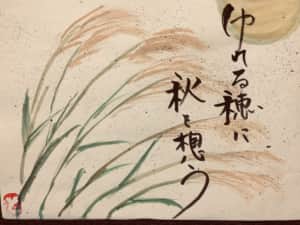 ゆれる穂に
秋を想う